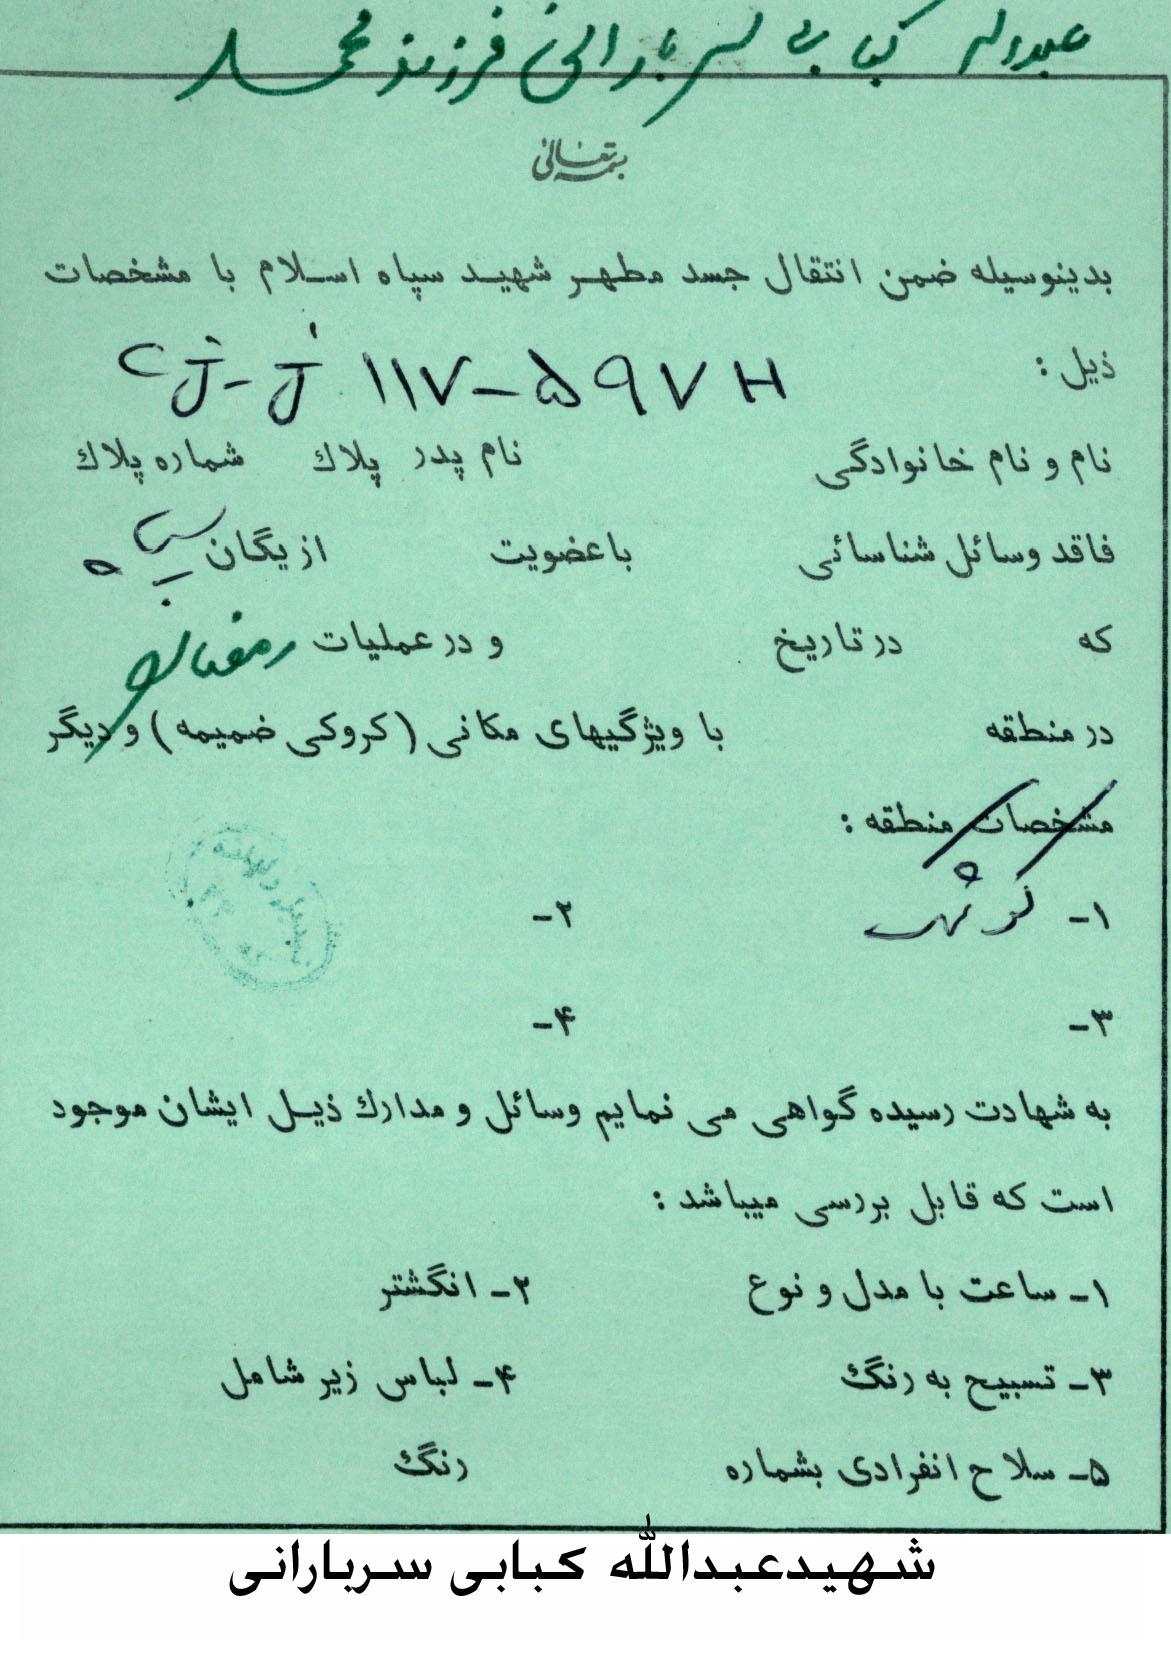 عبداله کبابی سربارانی فرزند محمد
بسمه تعالی
بدینوسیله ضمن انتقال جسد مطهر شهید سپاه اسلام با مشخصات
ذیل : ۱۱۷-۵۹۷H
نام و نام خانوادگی نام پدر پلاك شماره پلاك
فاقد وسائل شناسائی باعضویت از یگان
که در تاریخ و در عملیات رمضان
در منطقه با ویژگیهای مکانی (کروکی ضمیمه) و دیگر
مشخصات منطقه :
۱- ۲-
۳- ۴-
به شهادت رسیده گواهی می نمایم وسائل و مدارك ذیل ایشان موجود
است که قابل بررسی میباشد :
۱- ساعت با مدل و نوع ۲- انگشتر
۳- تسبیح به رنگ ۴- لباس زیر شامل
۵- سلاح انفرادی بشماره رنگ
شهیدعبدالله کبابی سربارانی